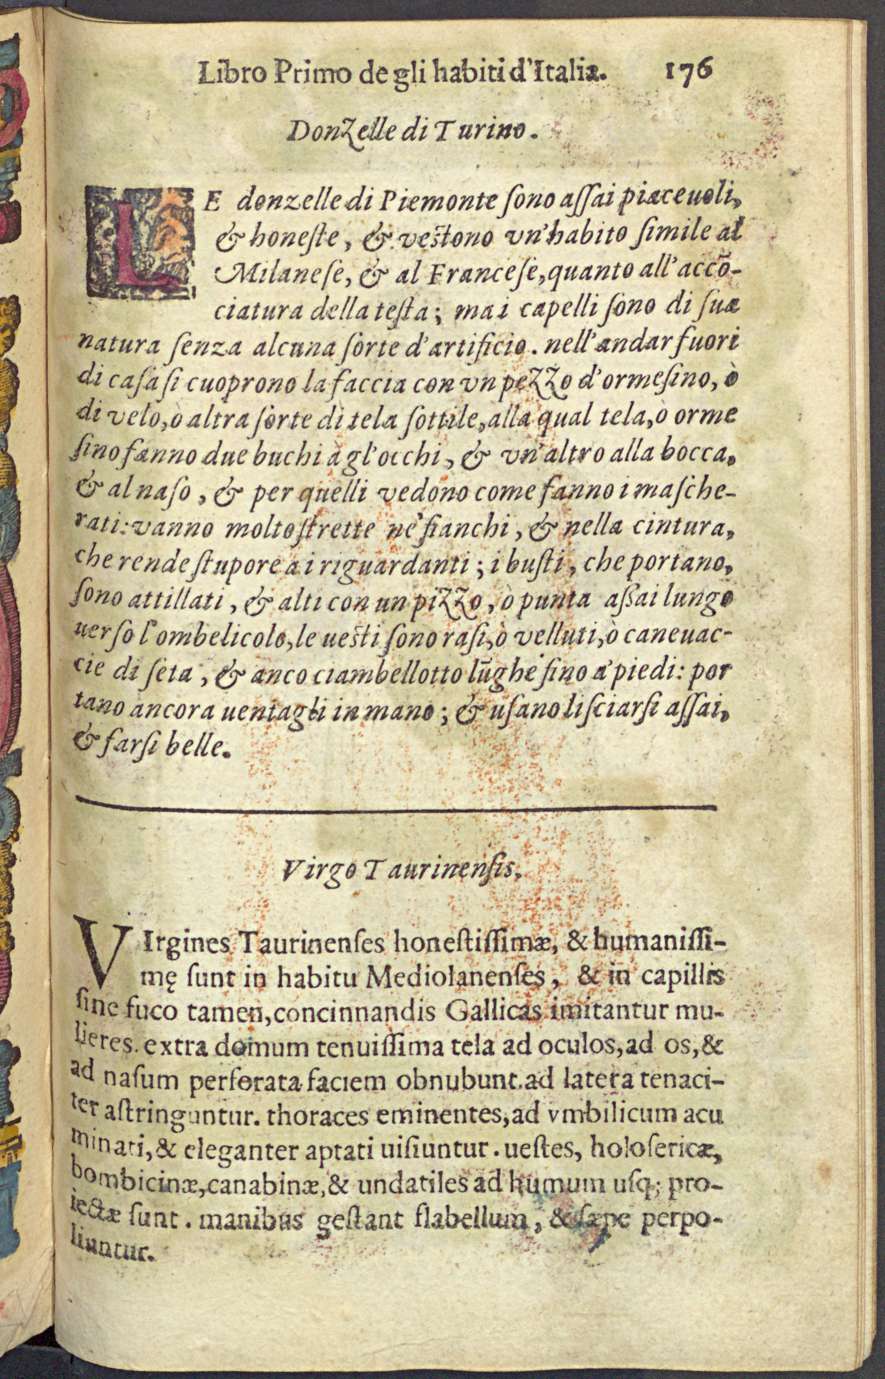 Libro Primo de gli habiti d'Italia. 176
Donzelle di Turino.
LE donzelle di Piemonte sono assai piaceuoli,
& honeste, & vestono vn'habito simile al
Milanese, & al Francese, quanto all'accõ-
ciatura della testa; ma i capelli sono di sua
natura senza alcuna sorte d'artificio. nell'andar fuori
di casa si cuoprono la faccia con vn pezzo d'ormesino, ò
di velo, o altra sorte di tela sottile, alla qual tela, o orme
sino fanno due buchi à gl'occhi, & vn'altro alla bocca,
& al naso, & per quelli vedono come fanno i masche-
rati: vanno molto strette ne' fianchi, & nella cintura,
che rende stupore a i riguardanti; i busti, che portano,
sono attillati, & alti con un pizzo, ò punta assai lungo
uerso l'ombelicolo, le uesti sono rasi, ò velluti, ò caneuac-
cie di seta, & anco ciambellotto lũghe sino a' piedi: por
tano ancora uentagli in mano; & usano lisciarsi assai,
& farsi belle.
Virgo Taurinensis.
VIrgines Taurinenses honestissimæ, & humanissi-
mę sunt in habitu Mediolanenses, & in capillis
sine fuco tamen, concinnandis Gallicas imitantur mu-
lieres. extra domum tenuissima tela ad oculos, ad os, &
ad nasum perforata faciem obnubunt. ad latera tenaci-
ter astringuntur. thoraces eminentes, ad vmbilicum acu
minati, & eleganter aptati uisiuntur. uestes, holosericæ,
bombicinæ, canabinæ, & undatiles ad humum usq; pro-
iectæ sunt. manibus gestant flabellum, & sæpe perpo-
liuntur.